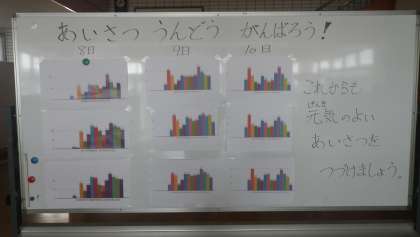 あいさつ うんどう がんばろう!
8日 9日 10日
これからも
元気のよい
げんき
あいさつを
つづけましょう。